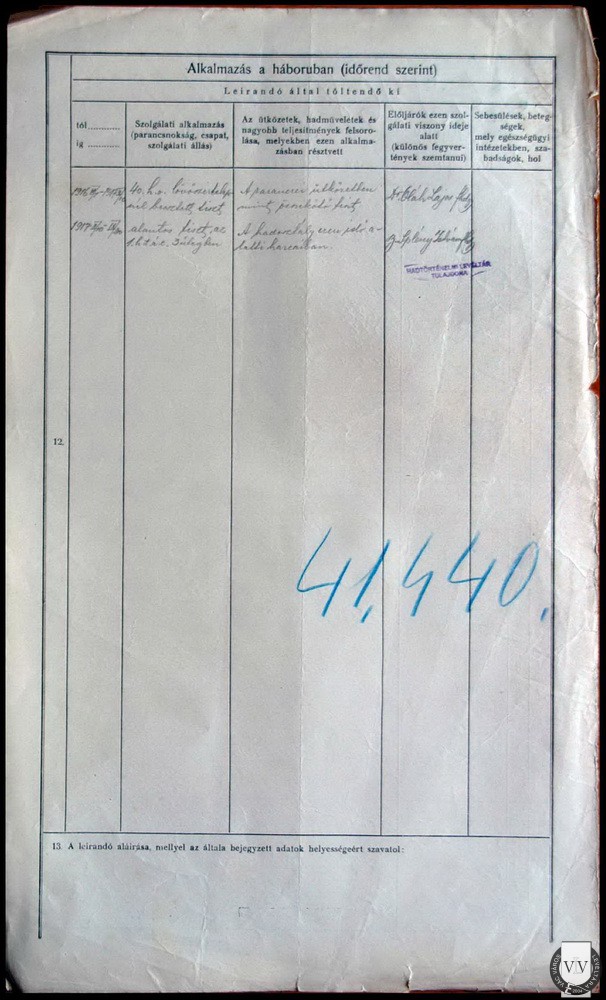 Alkalmazás a háboruban (időrend szerint)
Leirandó által töltendő ki
tól ............
ig ............
Szolgálati alkalmazás
(parancsnokság, csapat,
szolgálati állás)
Az ütközetek, hadműveletek és
nagyobb teljesitmények felsoro-
lása, melyekben ezen alkalma-
zásban résztvett
Előljárók ezen szol-
gálati viszony ideje
alatt
(különös fegyver-
tények szemtanui)
Sebesülések, beteg-
ségek,
mely egészségügyi
intézetekben, sza-
badságok, hol
40. h.
tiszt
A ütközetben
mint
Dr Oláh Lajos
1917
tiszt, az
A ezen idő a-
latti harcaiban.
HADTÖRTÉNELMI LEVÉLTÁR
TULAJDONA
12.
41,440.
13. A leirandó aláirása, mellyel az általa bejegyzett adatok helyességeért szavatol:
VÁC VÁROS LEVÉLTÁRA